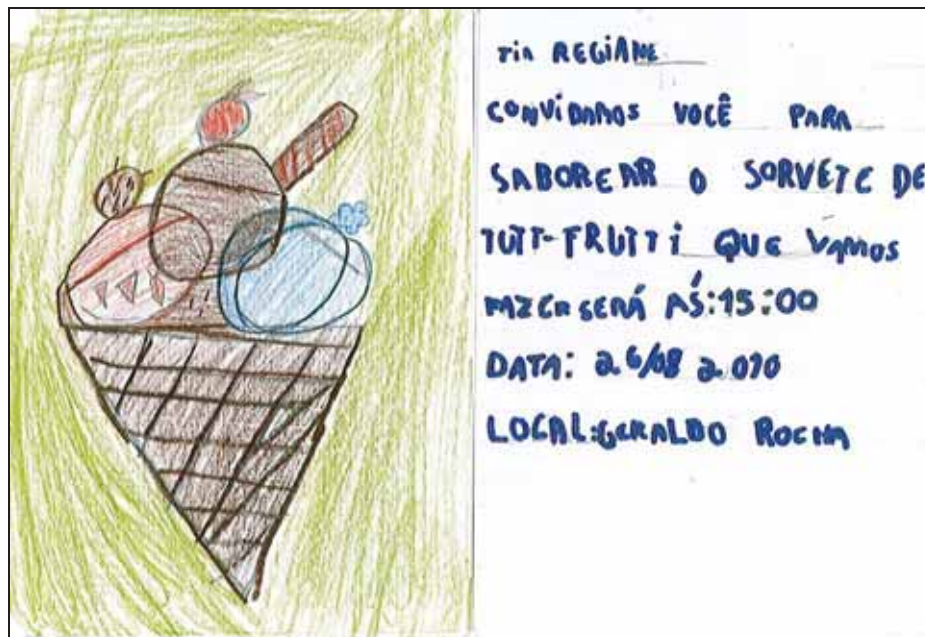 Tia REGIANE
CONVIDAMOS VOCÊ PARA
SABOREAR O SORVETE DE
TUTT-FRUTTI QUE VAMOS
FAZER SERÁ ÁS:15:00
DATA: 26/08 2.010
LOCAL:GERALDO ROCHA